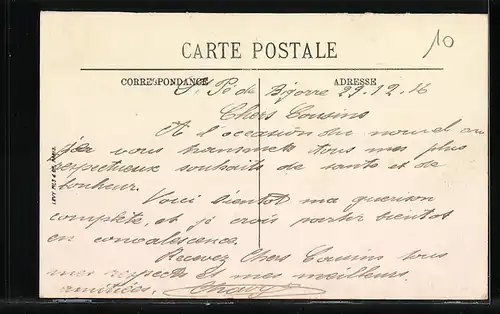 10
CARTE POSTALE
CORRESPONDANCE
ADRESSE
St Pé de Bigorre 29.12.16
Chers Cousins
A l'occasion du nouvel an
vous transmets tous mes plus
respectueux souhaits de santé et de
bonheur.
Voici bientot ma guerison
complète, et je crois partir bientot
en convalescence.
Recevez Chers Cousins tous
mes respects et mes meilleurs
amitiées.
LEVY FILS & Cie, PARIS